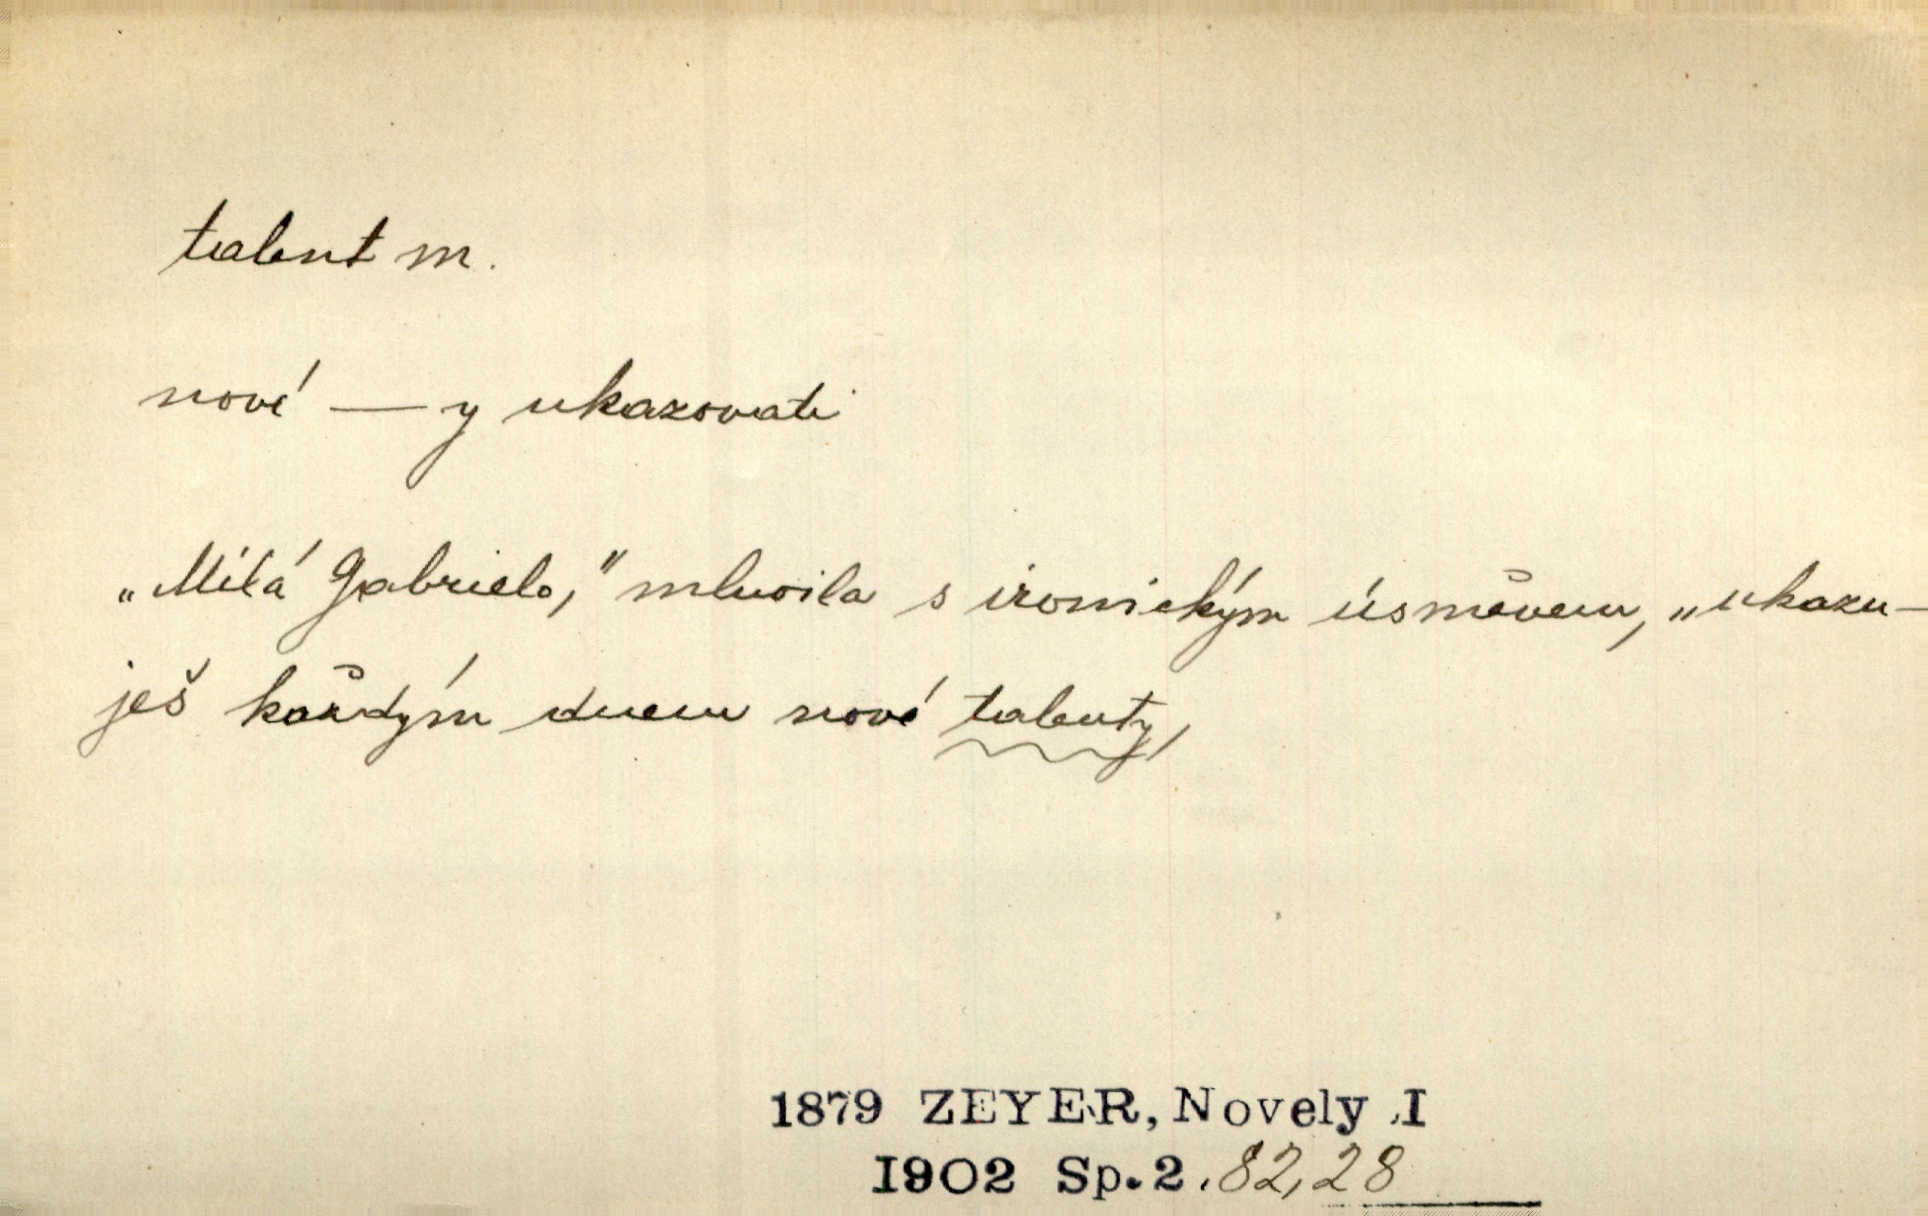 talent m.
nové — y ukazovati
„Milá Gabrielo,“ mluvila s ironickým úsměvem, „ukazu-
ješ každým dnem nové talenty,
1879 ZEYER, Novely I
1902 Sp. 2. 82, 28